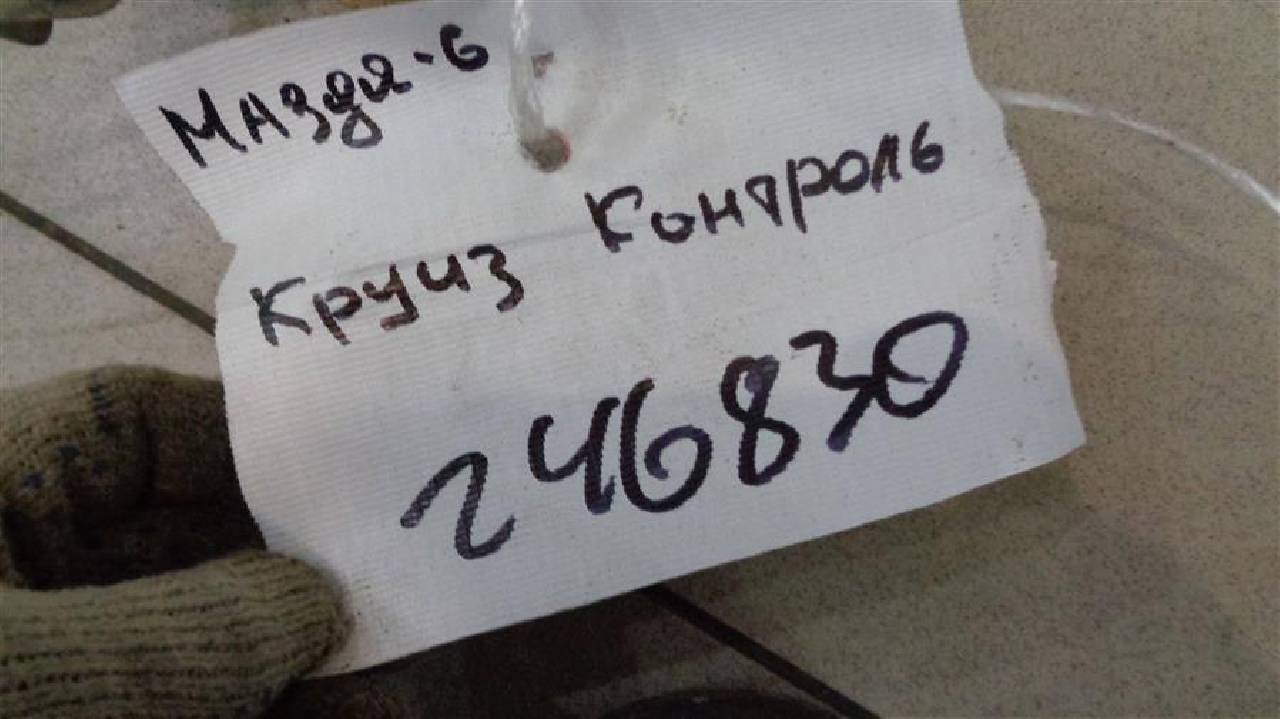 Мазда-6
Круиз Контроль
246830